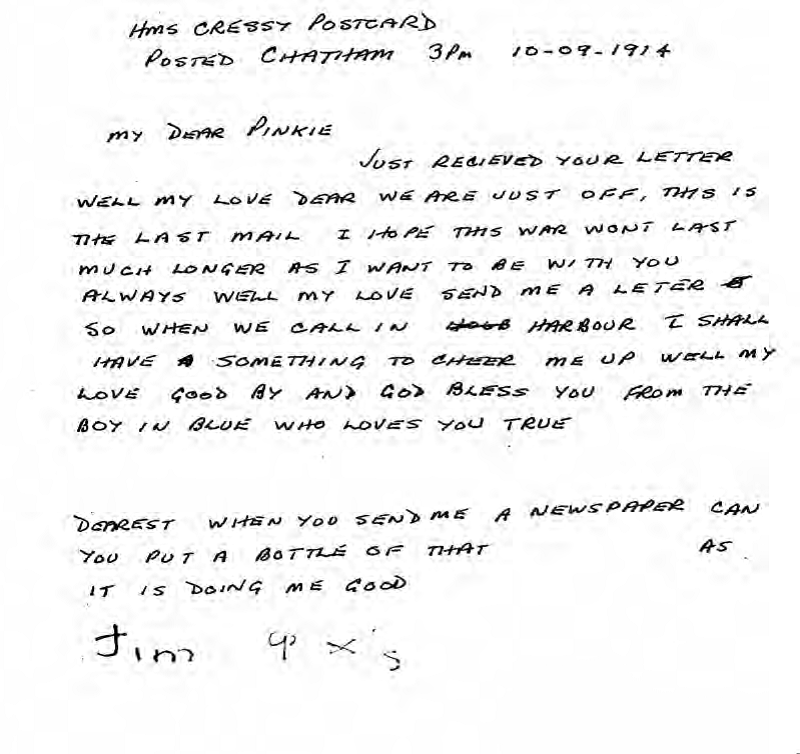 HMS CRESSY POSTCARD
POSTED CHATHAM 3PM 10-09-1914
MY DEAR PINKIE
JUST RECIEVED YOUR LETTER
WELL MY LOVE DEAR WE ARE JUST OFF, THIS IS
THE LAST MAIL I HOPE THIS WAR WONT LAST
MUCH LONGER AS I WANT TO BE WITH YOU
ALWAYS WELL MY LOVE SEND ME A LETER
SO WHEN WE CALL IN HARBOUR I SHALL
HAVE SOMETHING TO CHEER ME UP WELL MY
LOVE GOOD BY AND GOD BLESS YOU FROM THE
BOY IN BLUE WHO LOVES YOU TRUE
DEAREST WHEN YOU SEND ME A NEWSPAPER CAN
YOU PUT A BOTTLE OF THAT AS
IT IS DOING ME GOOD
Jim 9 x's